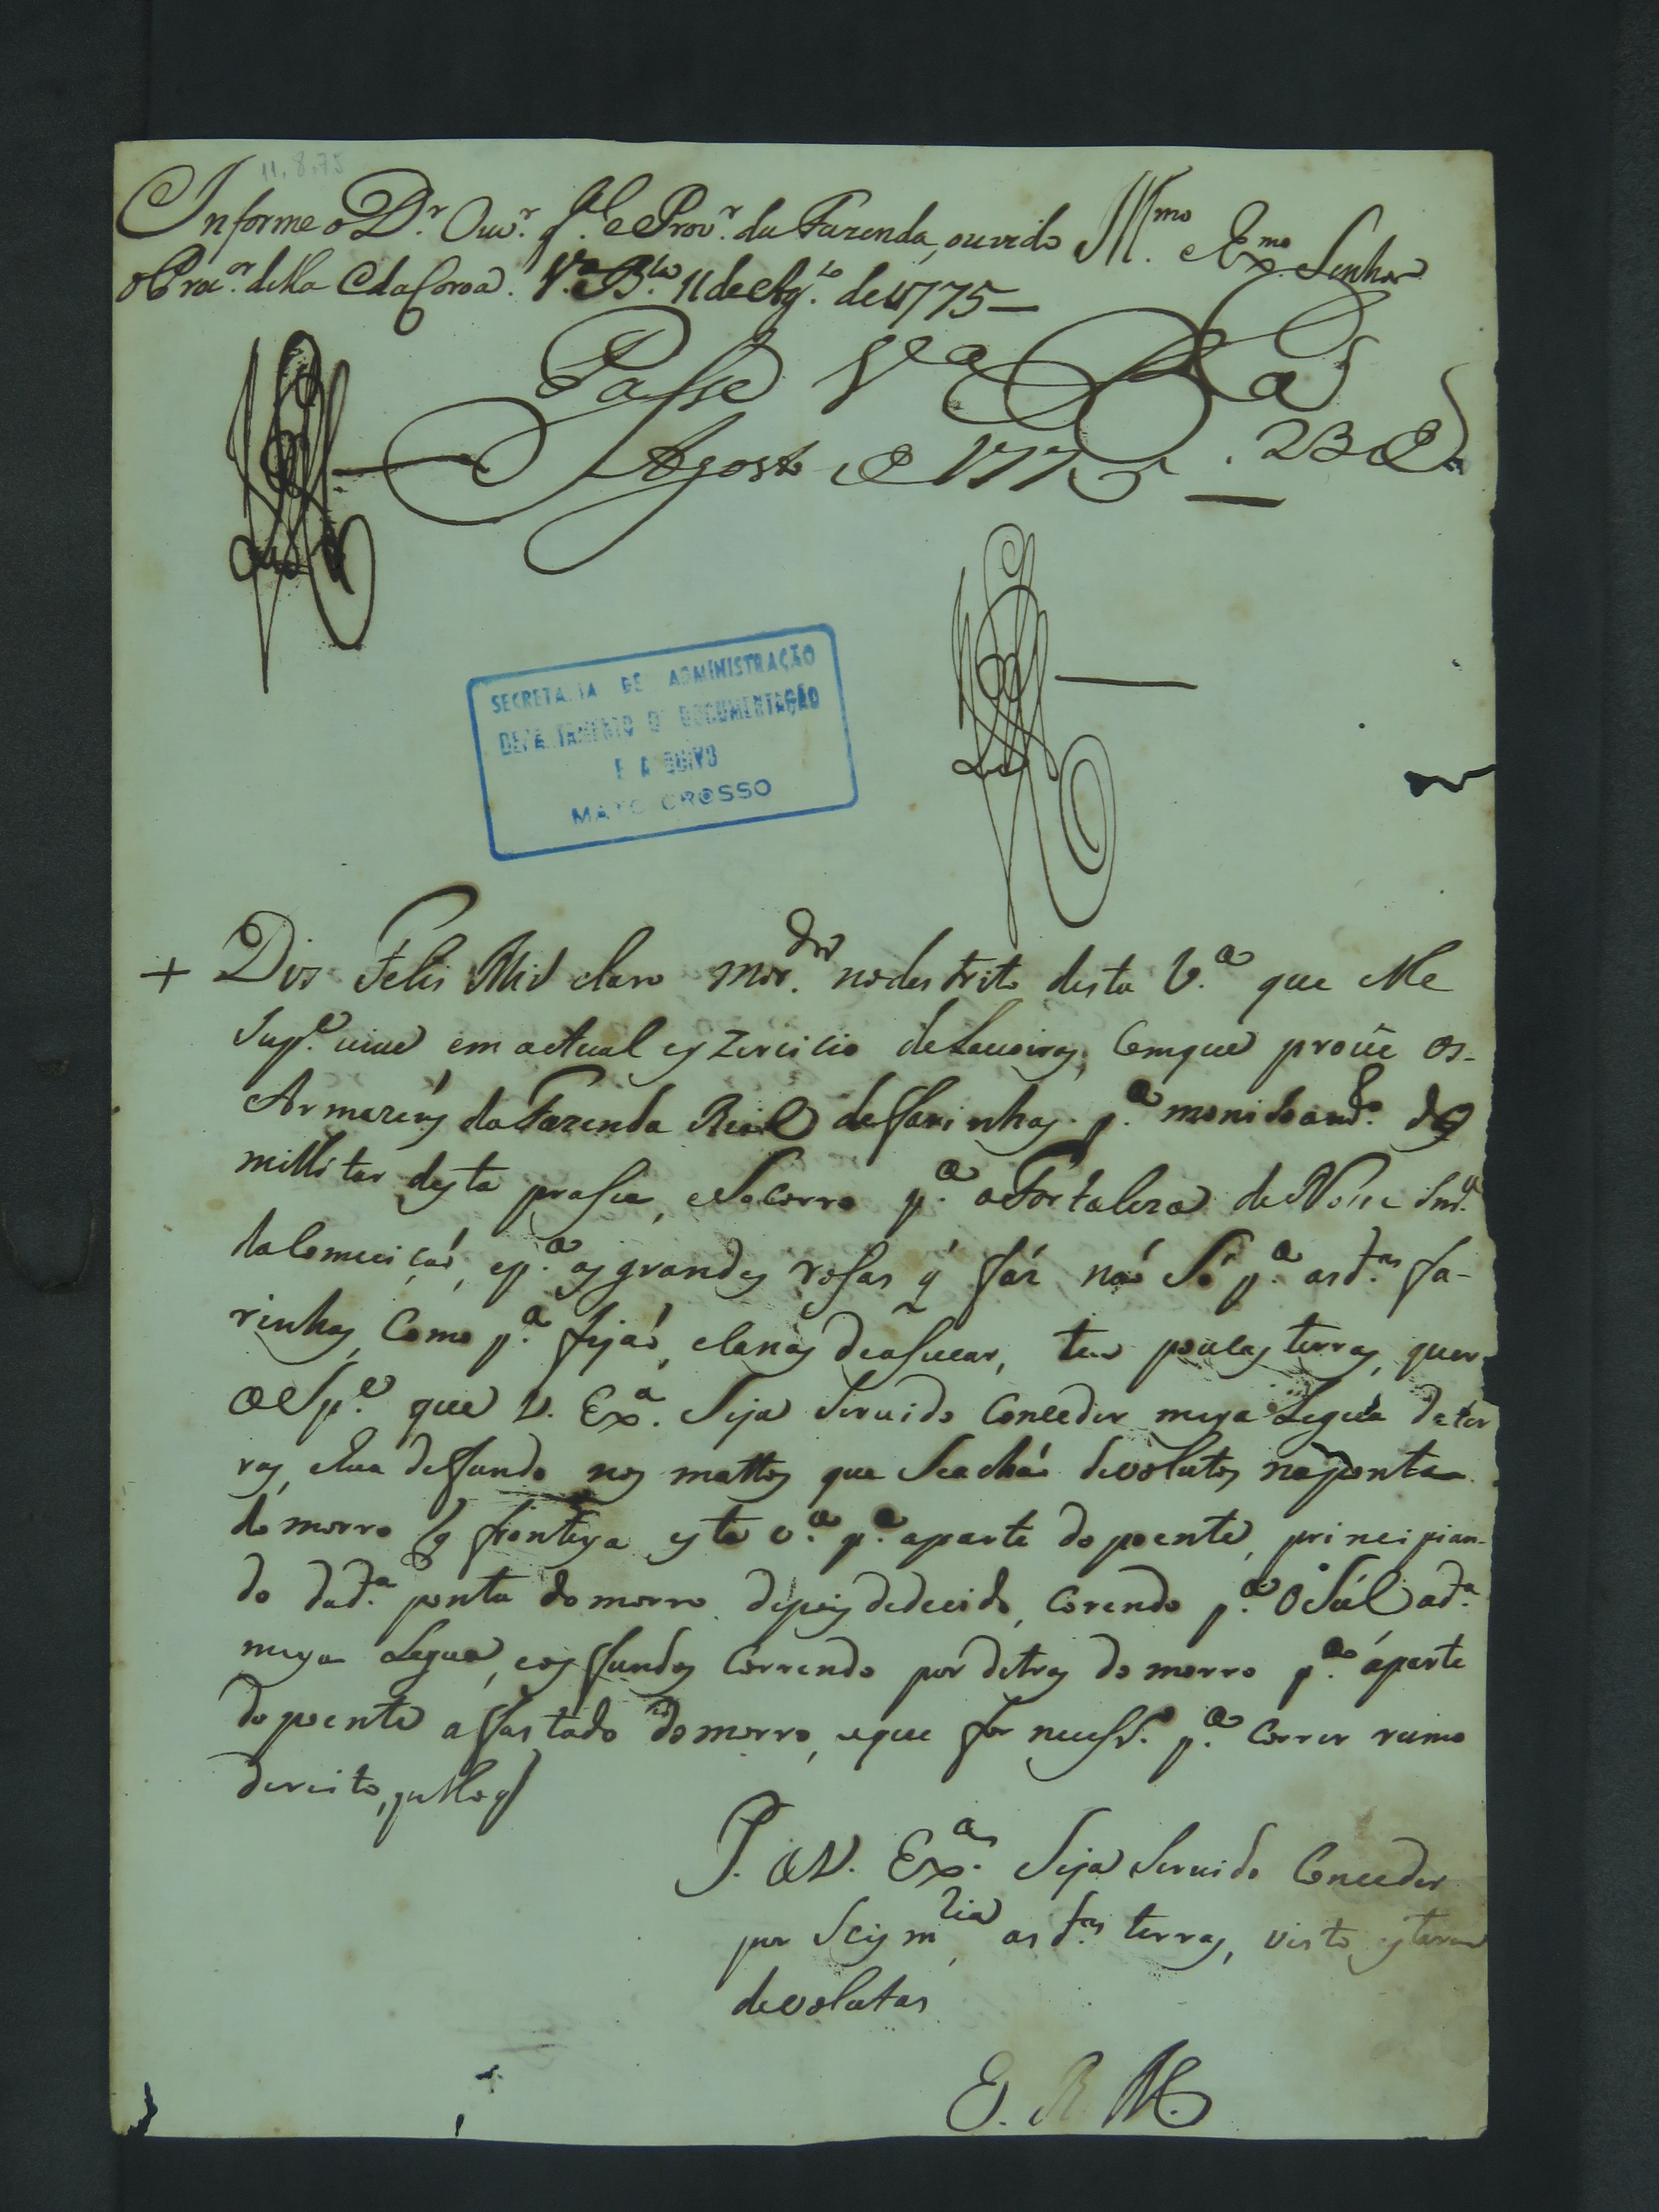 11.8.75
Informe o D.r Ouv.r g.al e Prov.r da Fazenda, ouvido
o Proc.or della e da Coroa. V.a B.la 11 de Ag.to de 1775 —
Ill.mo e Ex.mo Senhor
Passe V.a B.a 23 de
Agosto de 1775 —
SECRETARIA DE ADMINISTRAÇÃO
DEPARTAMENTO DE DOCUMENTAÇÃO
E ARQUIVO
MATO GROSSO
+ Dis Felis claro mor.dor no destrito desta V.a que elle
Sup.e vive em actual eyzercicio de Lavoiras, Com que provê os
Armazeis da Fazenda Real de ffarinhas p.a
millitar desta prasa, e Socorro p.a a Fortaleza de Nosa Snr.a
da Comceiçaõ, e p.a as grandes rosas q̃ fáz naõ Só p.a as d.as fa-
rinhas, Como p.a fijaõ, e canas de asucar, tem poucas terras, quer
o Sp.e que V. Ex.a Seja Servido Conceder meya Legua de ter
ras, e hua de ffundo nos mattos que Se achaõ devolutos na ponta
do morro q̃ fronteya esta v.a p.a a parte do poente, principian-
do da d.a ponta do morro depois de decido, Corendo p.a o Sul a d.a
meya Legua, e os ffundos Correndo por detras do morro p.a á parte
do poente affastado do morro, o que for necess.o p.a Correr rumo
dereito, pello q̃
P. a V. Ex.a Seja Servido Conceder
por Seism.ria as d.as terras, visto estarem
devolutas
E. R. M.